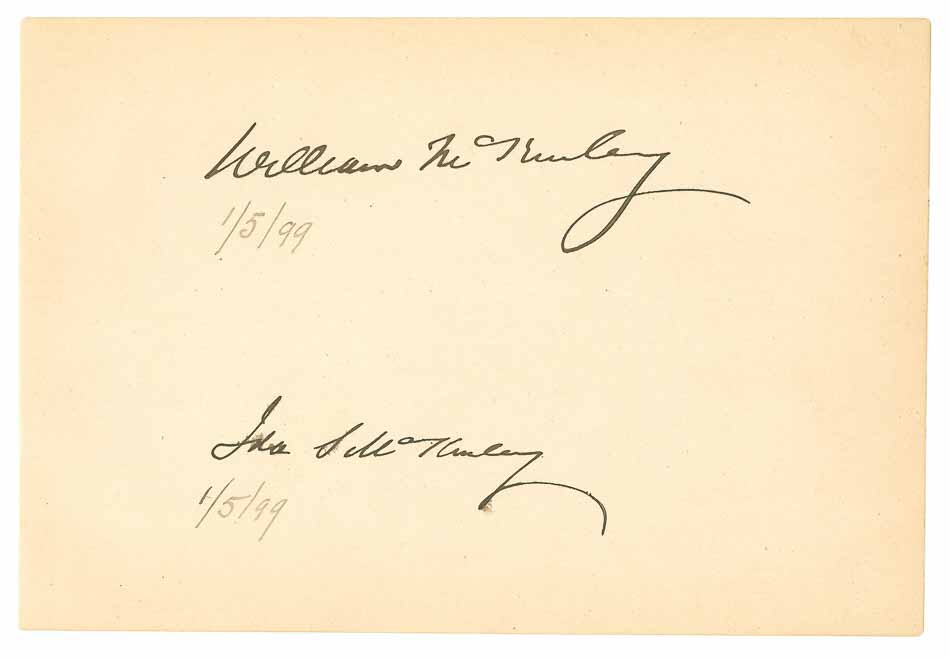 William McKinley
1/5/99
Ida S McKinley
1/5/99